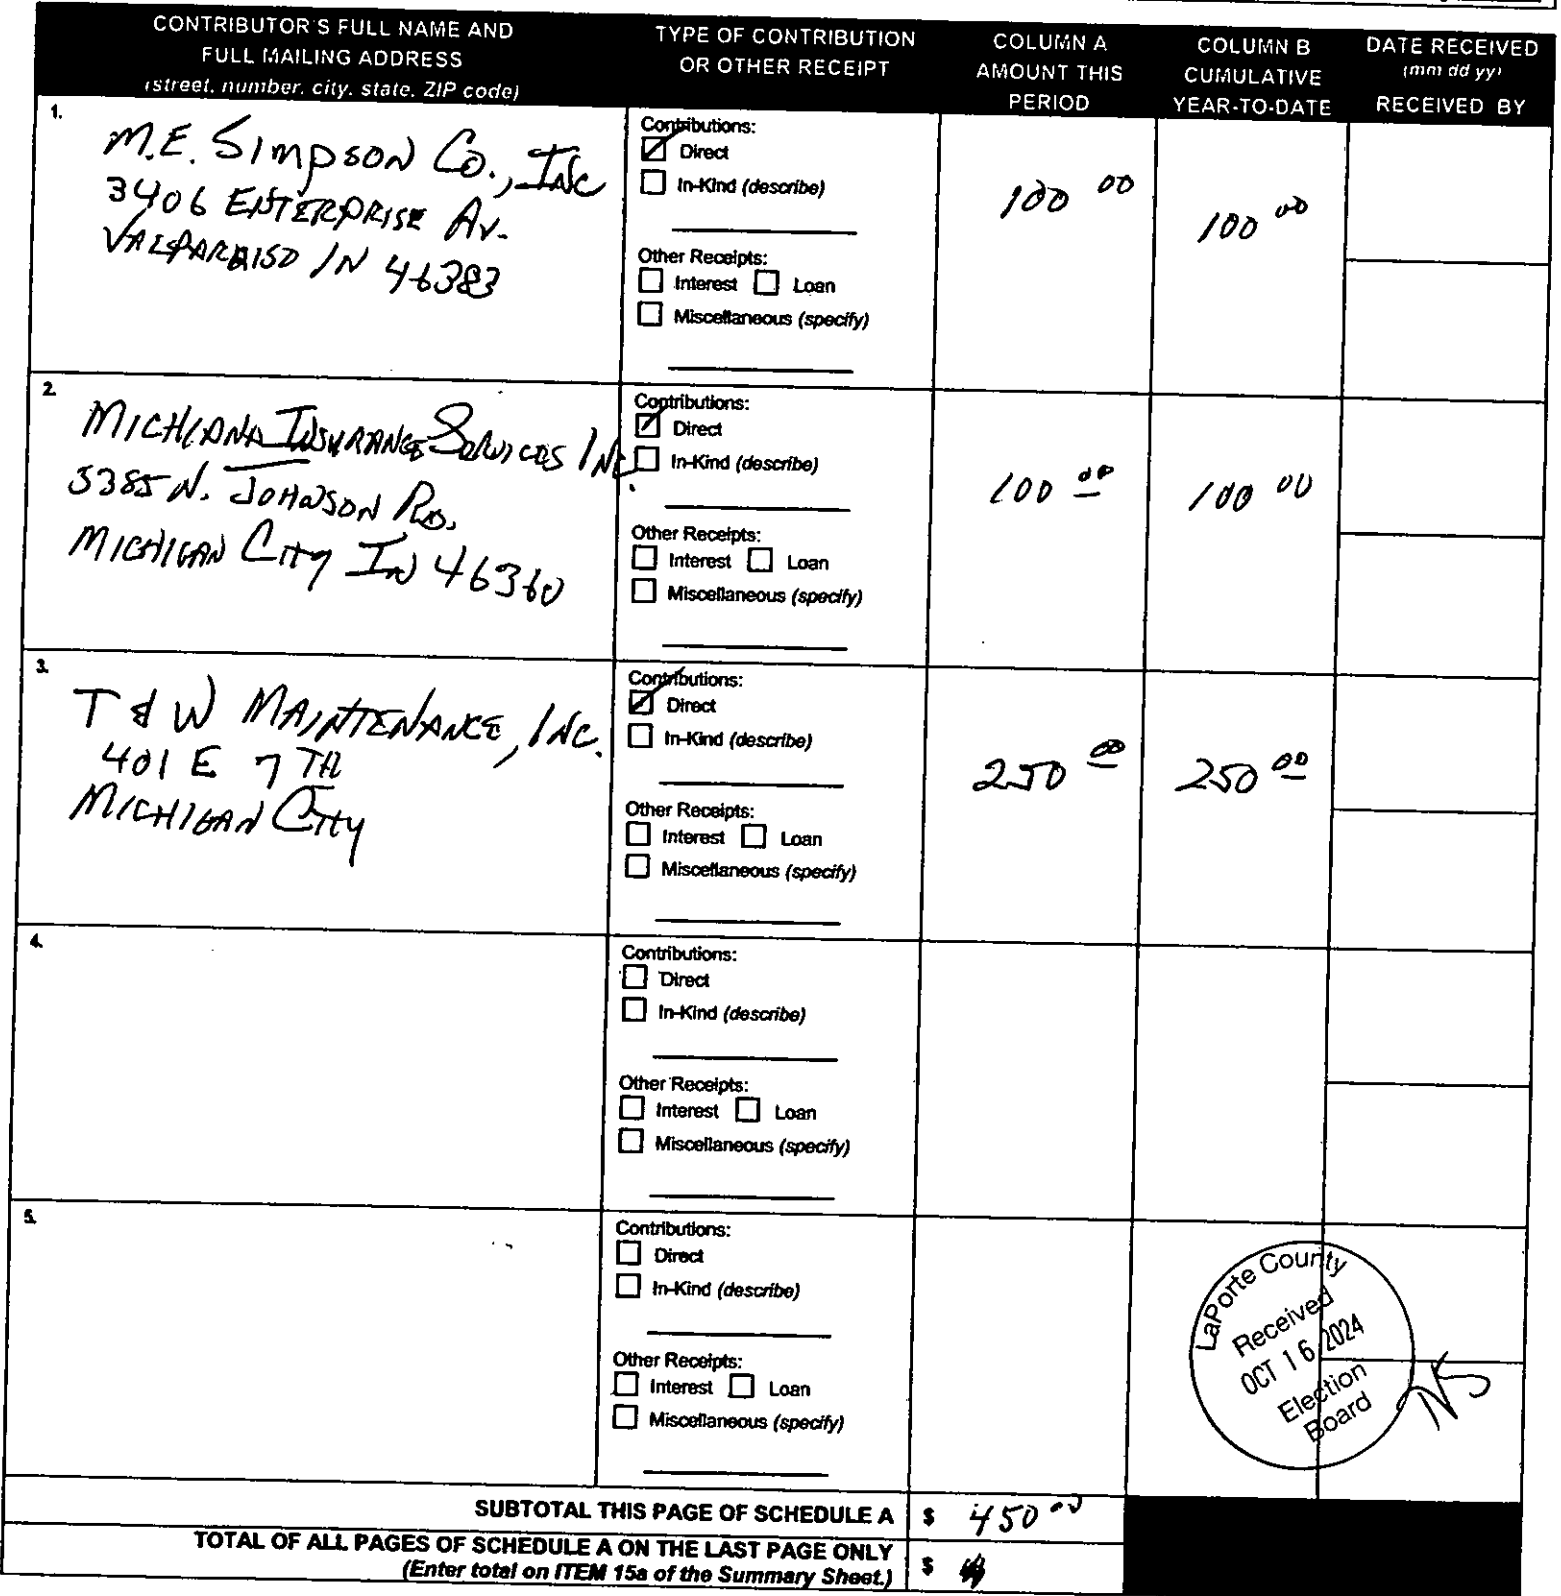 CONTRIBUTOR'S FULL NAME AND
FULL MAILING ADDRESS
(street, number, city, state, ZIP code)
TYPE OF CONTRIBUTION
OR OTHER RECEIPT
COLUMN A
AMOUNT THIS
PERIOD
COLUMN B
CUMULATIVE
YEAR-TO-DATE
DATE RECEIVED
(mm dd yy)
RECEIVED BY
1.
M.E. SIMPSON CO., INC
3406 ENTERPRISE AV.
VALPARAISO IN 46383
Contributions:
Direct
In-Kind (describe)
Other Receipts:
Interest Loan
Miscellaneous (specify)
100 00
100 00
2.
MICHIANA INSURANCE SERVICES INC.
5385 N. JOHNSON RD.
MICHIGAN CITY IN 46360
Contributions:
Direct
In-Kind (describe)
Other Receipts:
Interest Loan
Miscellaneous (specify)
100 00
100 00
3.
T & W MAINTENANCE, INC.
401 E 7TH
MICHIGAN CITY
Contributions:
Direct
In-Kind (describe)
Other Receipts:
Interest Loan
Miscellaneous (specify)
250 00
250 00
4.
Contributions:
Direct
In-Kind (describe)
Other Receipts:
Interest Loan
Miscellaneous (specify)
5.
Contributions:
Direct
In-Kind (describe)
Other Receipts:
Interest Loan
Miscellaneous (specify)
LaPorte County
Received
OCT 16 2024
Election
Board
NS
SUBTOTAL THIS PAGE OF SCHEDULE A $ 450 00
TOTAL OF ALL PAGES OF SCHEDULE A ON THE LAST PAGE ONLY
(Enter total on ITEM 15a of the Summary Sheet.) $